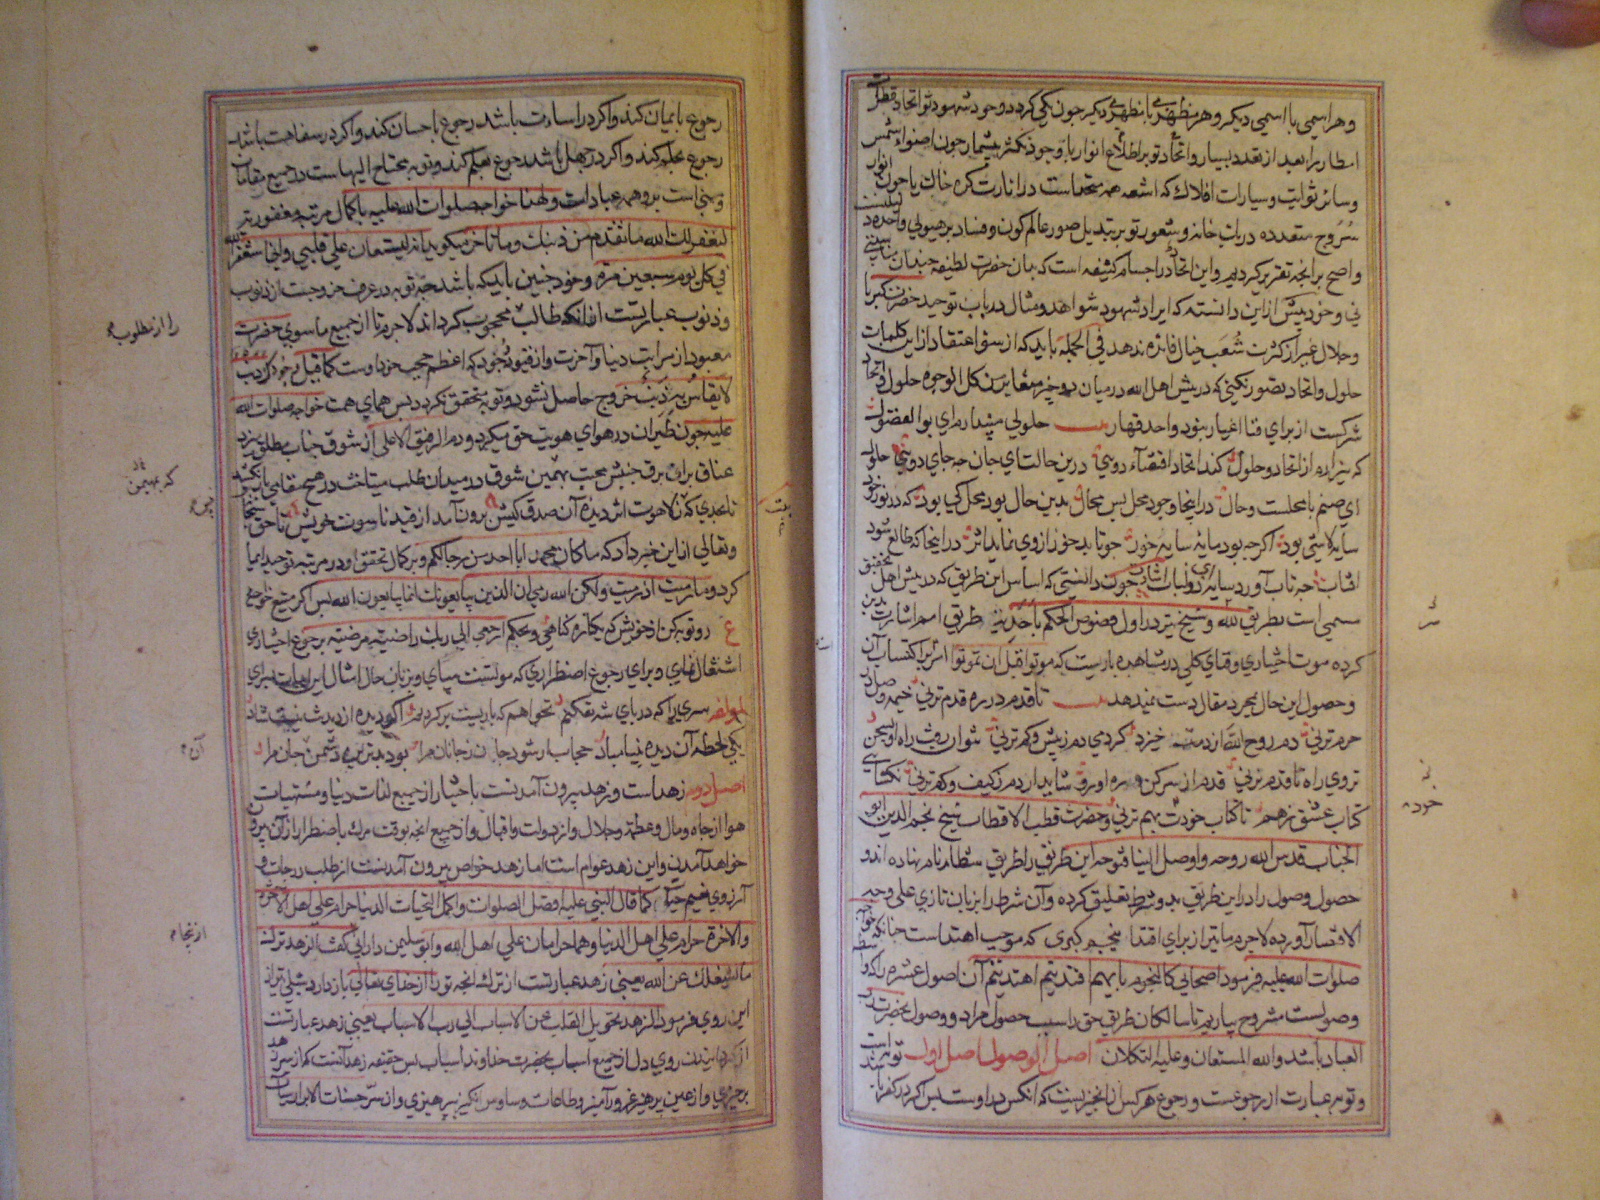 وهر اسمی با اسمی دیگر وهر مظهری با مظهری دیگر چون یکی کردد و وجود شهود تو اتحاد قطرات
امطار را بعد از تعدد بسیار واتحاد تو بر اطلاع انوار با وجود تکثر بیشمار چون اضواء شمس
وسائر ثوابت وسیارات افلاک که اشعه همه متحد است در انارت کره خاک یا چون انوار
سروج متعدده در یک خانه وشعور تو بر تبدیل صور عالم کون وفساد بر هیولی واحده
واضح بر آنچه تقریر کردیم واین اتحاد در اجسام کثیفه است که بآن حضرت لطیفه چندان
نی وخود پیش ازین دانسته که ایراد شهود شواهد ومثال در باب توحید حضرت کبریا
وجلال غیر از کثرت شعب خیال فایده ندهد فی الجمله باید که از سوء اعتقاد ازین کلمات
حلول واتحاد تصور نکنی که در پیش اهل الله در میان دو چیز متغایر من کل الوجوه حلول واتحاد
شرکست از برای فنا اغیار نبود واحد قهار حلولی مپندارم ای بو الفضول
که بیزارم از اتحاد وحلول کند اتحاد اقتضاء دویی درین حالت ای جان چه جای دویی حلول
ای صنم با محلست وحال در اینجا وجود محل بس محال بدین حال بود محل کی بود که در نور خود
سایه لاشی بود اکر چه بود مایه سایه خور چو تابد خور از وی نماند اثر در آنجا که طالع شود
آفتاب چه تاب آورد سایه ای ذولباب چون دانستی که اساس این طریق که در پیش اهل تحقیق
مسمی است بطریق لله وشیخ نیز در اول فصوص الحکم باحدیت طریق امم اشارت بدین
کرده موت اختیاری وفنای کلی در مشاهده باریست که موتوا قبل ان تموتوا امر بر اکتساب آن
وحصول این حال بمجرد مقال دست نمیدهد تا قدم در ره قدم نزنی خیمه وصل در
حرم نزنی دم روح الله از دمت خیزد کر دمی دم ز بیش وکم نزنی
نروی راه تا قدم نزنی قدم از سر کن
کتاب عشق ز هم تا کتاب خودت بهم نزنی وحضرت قطب الاقطاب شیخ نجم الدین ابو
الجناب قدس الله روحه واوصل الینا فتوحه این طریق را طریق شطار نام نهاده اند و
حصول وصول را درین طریق بده شرط تعلیق کرده وآن شرط را بزبان تازی علی وجه
الاقتصار آورده لاجرم ما نیز از برای اقتدا بنجم کبری که موجب اهتداست چنانکه خواجه
صلوات الله علیه فرمود اصحابی کالنجوم بایهم اقتدیتم اهتدیتم آن اصول عشره را که
وصولست مشروح بیاریم تا سالکان طریق حق را سبب حصول مراد ووصول بحضرت رب
العباد باشد والله المستعان وعلیه التکلان اصل الوصول اصل اول توبه است
وتوبه عبارت از رجوعست ورجوع هر کس از آنچیزیست که آنکس در اوست پس اکر در کفر باشد
رجوع بایمان کند واکر در اساءت باشد رجوع باحسان کند واکر در سفاهت باشد
رجوع بحلم کند واکر در جهل باشد رجوع بعلم کند وتوبه محتاج الیهاست در جمیع مقامات
ومبنی است برو همه عبادات ولهذا خواجه صلوات الله علیه با کمال مرتبه مغفور بر
لیغفر لک الله ما تقدم من ذنبک وما تأخر میکوید انه لیغان علی قلبی وانی لاستغفر الله
فی کل یوم سبعین مرة وخود چنین باید که باشد چه توبه در عرف خروجست از ذنوب
وذنوب عبارتست از آنکه طالب محجوب کرداند لاجرم تا از جمیع ما سوی حضرت
معبود از مراتب دنیا وآخرت واز قیود خود که اعظم حجب خود اوست کما قیل وجودک ذنب
لا یقاس به ذنب خروج حاصل نشود توبه متحقق نکردد پس همای همت خواجه صلوات الله
علیه چون طیران در هوای هویت حق میکرد ودم الرفیق الاعلی از شوق جناب مطلق میزد
عنان براق برق جنبش محبت بهمین شوق در میدان طلب میتاخت در هیچ مقامی باز نکشید
تا بحدی که لاحوت اش دیده آن صدف کیش برون آمد از قید ناسوت خویش تا حق سبحانه
وتعالی از این خبر داد که ما کان محمد ابا احد من رجالکم وبر کمال تحقق او در مرتبه توحید ایما
کرد وما رمیت اذ رمیت ولکن الله رمی ان الذین یبایعونک انما یبایعون الله پس اکر متبع خواجه
ع رو توبه کن از خویش که بیچاره کناهی وبحکم ارجعی الی ربک راضیة مرضیة برجوع اختیاری
اشتغال نمای وبرای رجوع اضطراری که موتست مپای وبزبان حال امثال این ابیات میسرای
لمؤلفه سری را که در پای شه نفکنم نخواهم که باریست بر کردنم اکر دیده از دیدنت نیست شاد
یکی لحظه آن دیده بینا مباد حجاب ار شود جان ز جانان مرا بود بدترین دشمن جان مرا
اصل دوم زهد است وزهد بیرون آمدنست باختیار از جمیع لذات دنیا ومشتهیات
هوا از جاه ومال وعظمة وجلال واز دولت واقبال واز جمیع آنچه بوقت مرک باضطرار از آن بیرون
خواهد آمدن واین زهد عوام است اما زهد خواص بیرون آمدنست از طلب درجات و
آرزوی نعیم جنات کما قال النبی علیه افضل الصلوات واکمل التحیات الدنیا حرام علی اهل الآخرة
والآخرة حرام علی اهل الدنیا وهما حرامان علی اهل الله وابو سلیمن دارانی کفت الزهد ترک
ما یشغلک عن الله یعنی زهد عبارتست از ترک آنچه تو را از خدای تعالی باز دارد شبلی نیز از
این روی فرمود الزهد تحویل القلب من الاسباب الی رب الاسباب یعنی زهد عبارتست
از کردانیدن روی دل از جمیع اسباب بحضرت خداوند اسباب پس حقیقه زهد آنست که از سر زهد
برخیزی واز عین پرهیز غرور آمیز وطاعات وساوس انکیز بپرهیزی واز سر حسنات الابرار سیئات
را از مطلوب
آن
از نجا
خود